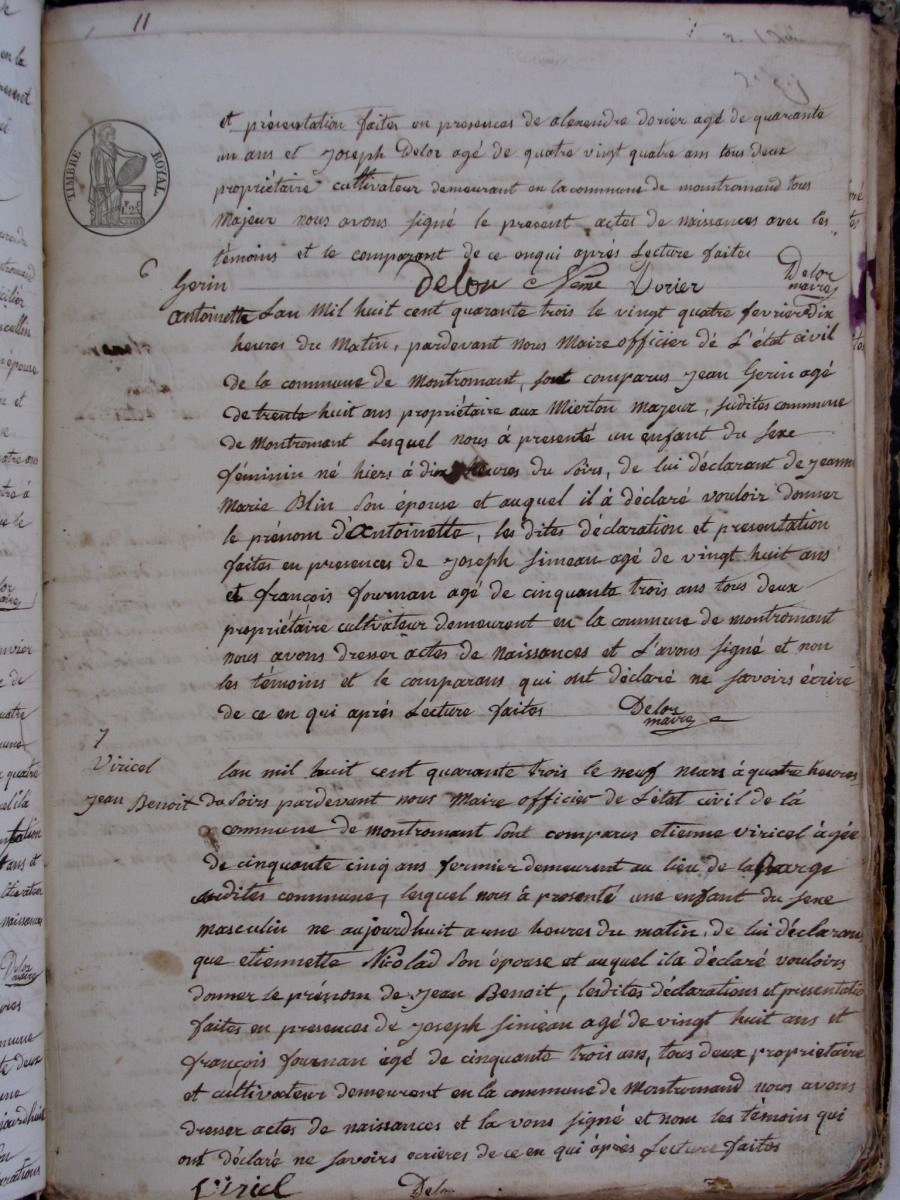 11
TIMBRE ROYAL
et présentation faites en presences de alexendre dorier agé de quarante
un ans et Joseph Delor agé de quatre vingt quatre ans tous deux
propriétaire cultivateur demeurant en la commune de montromand tous
Majeur nous avons signé le present actes de naissances avec les
témoins et le comparant de ce enqui après Lecture faites
Delor Dorier Delor
maire
6
Gerin
Antoinette Lan Mil huit cent quarante trois le vingt quatre fevrier dix
heures du Matin, pardevant nous Maire officier dé L'état civil
de la commune de Montromant, sont comparus Jean Gerin agé
de trente huit ans propriétaire aux Mierton Majeux, sudites commune
de Montromant Lesquel nous à presenté un enfant du sexe
féminin né hiers à dix heures du soirs, de lui déclarant de Jeanne
Marie Blin son épouse et auquel il à déclaré vouloir donner
le prénom d'Antoinette, les dites déclaration et presentation
faites en presences de Joseph Simean agé de vingt huit ans
et françois fournan agé de cinquante trois ans tous deux
propriétaire cultivateur demeurent en la commune de montromant
nous avons dresser actes de naissances et L'avons signé et non
les témoins et le comparans qui ont déclaré ne savoirs écrire
de ce en qui après Lecture faites Delor
maire
7
Viricel
Jean Benoit
lan mil huit cent quarante trois le neuf mars à quatre heures
du Soirs pardevant nous Maire officier de L'état civil de la
commune de montromant sont comparus etienne viricel àgée
de cinquante cinq ans fermier demeurent au lieu de la Barge
sudites commune, lesquel nous à presenté une enfant du sexe
masculin ne aujourdhuit a une heures du matin, de lui déclaran
que etiennette Nicolad son épouse et auquel ila déclaré vouloirs
donner le prénom de Jean Benoit, lesdites déclarations et presentatio
faites en presences de Joseph Siméan agé de vingt huit ans et
françois fournan àgé de cinquante trois ans, tous deux propriétaire
et cultivateur demeurent en la commune de Montromand nous avons
dresser actes de naissances et la vons signé et nom les témoins qui
ont déclaré ne savoirs ecrieres de ce en qui après Lecture faites
Viricel Delor